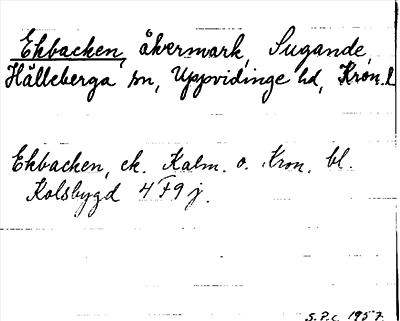 Ekbacken, åkermark, Sugande,
Hälleberga sn, Uppvidinge hd, Kron. l
Ekbacken, ek. Kalm. o. Kron. bl.
Kolsbygd 4 F 9 j.
S.P.C. 1957.